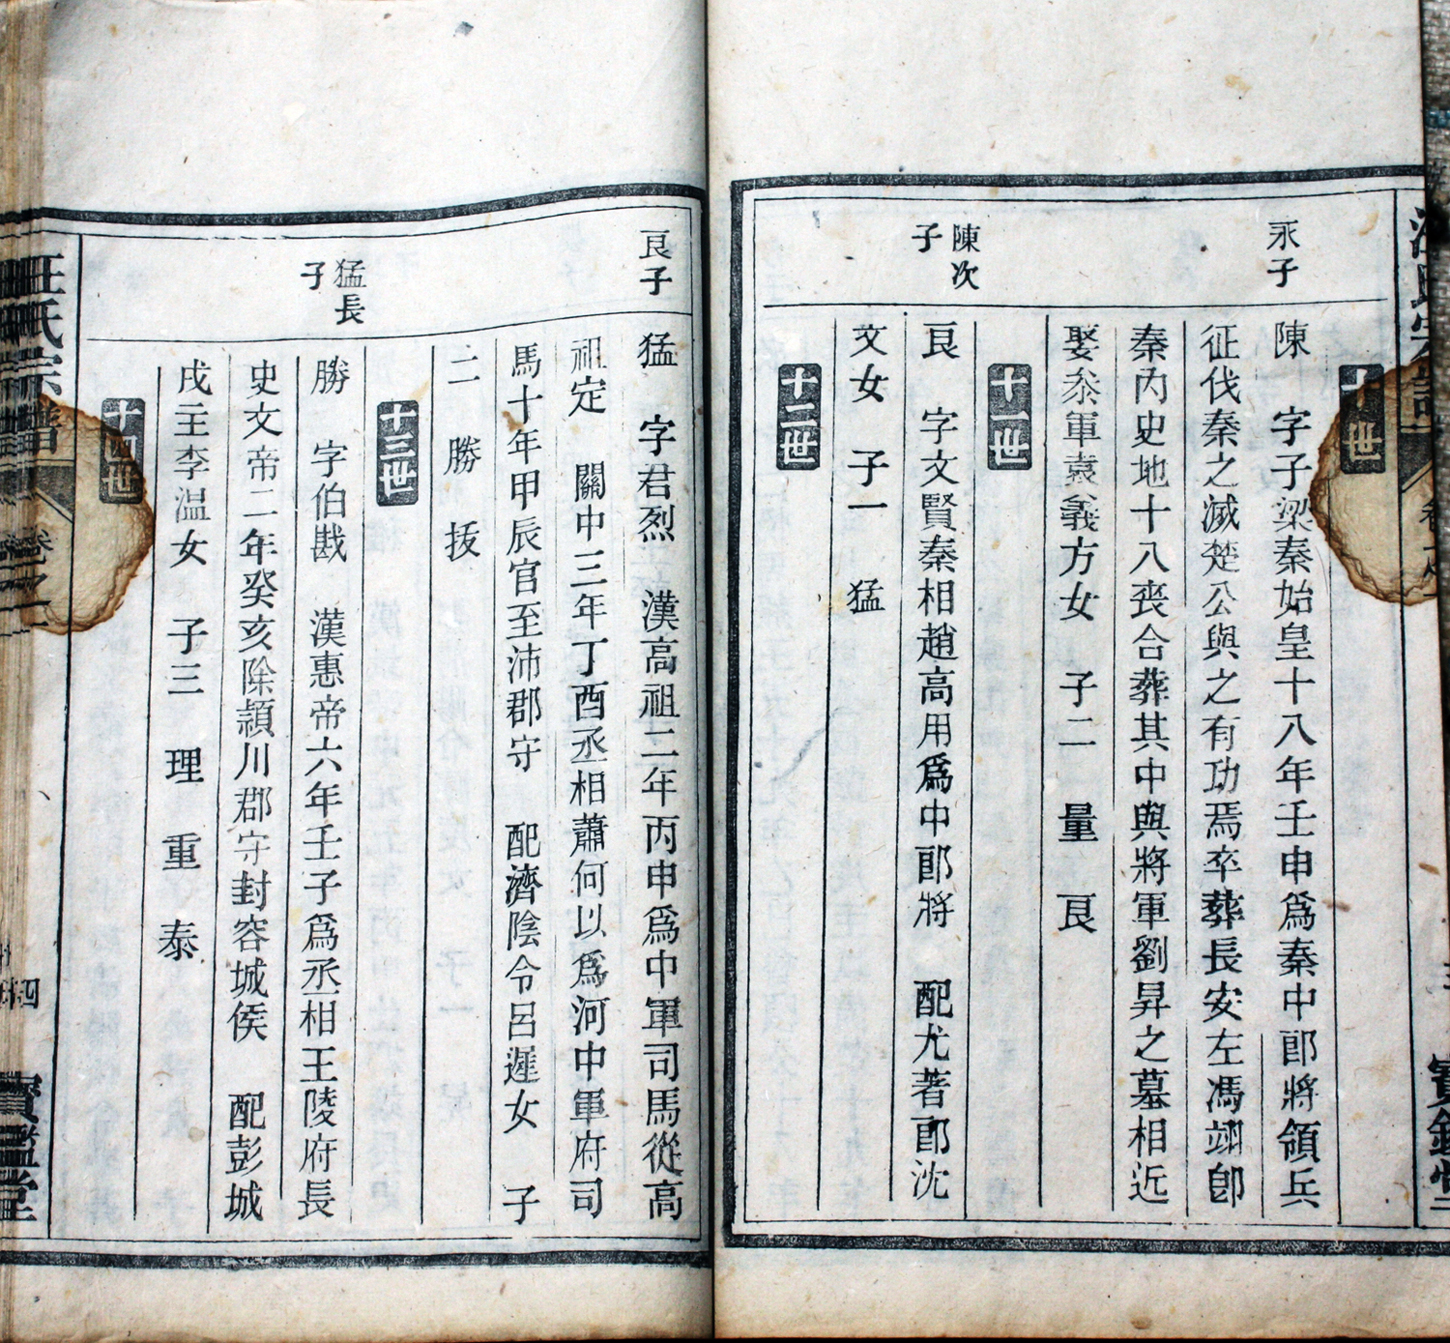 汪氏宗譜 卷之一 三 寶鑑堂
十世
永子
陳 字子梁秦始皇十八年壬申爲秦中郎將領兵
征伐秦之滅楚公與之有功焉卒葬長安左馮翊卽
秦內史地十八喪合葬其中與將軍劉昇之墓相近
娶叅軍袁義方女 子二 量 良
十一世
陳次子
良 字文賢秦相趙高用爲中郎將 配尤著郎沈
文女 子一 猛
十二世
良子
猛 字君烈 漢高祖二年丙申爲中軍司馬從高
祖定 關中三年丁酉丞相蕭何以爲河中軍府司
馬十年甲辰官至沛郡守 配濟陰令呂遲女 子
二 勝 拔
十三世
猛長子
勝 字伯戡 漢惠帝六年壬子爲丞相王陵府長
史文帝二年癸亥除潁川郡守封容城侯 配彭城
戌主李溫女 子三 理 重 泰
十四世
汪氏宗譜 卷之一 四 寶鑑堂